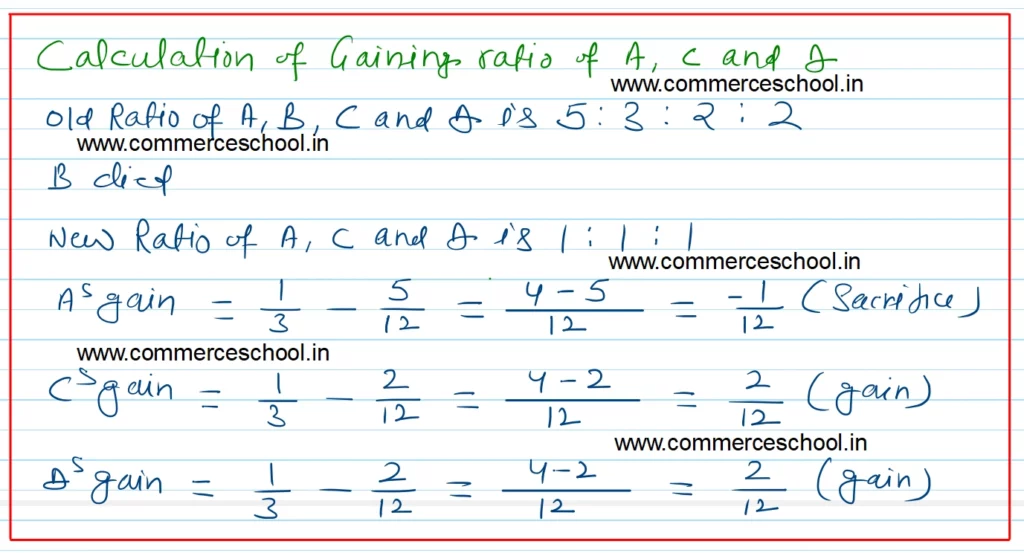 Calculation of Gaining ratio of A, C and D
www.commerceschool.in
Old Ratio of A, B, C and D is 5 : 3 : 2 : 2
www.commerceschool.in
B died
New Ratio of A, C and D is 1 : 1 : 1
www.commerceschool.in
A's gain = 1/3 - 5/12 = 4-5/12 = -1/12 (Sacrifice)
www.commerceschool.in
C's gain = 1/3 - 2/12 = 4-2/12 = 2/12 (gain)
www.commerceschool.in
D's gain = 1/3 - 2/12 = 4-2/12 = 2/12 (gain)